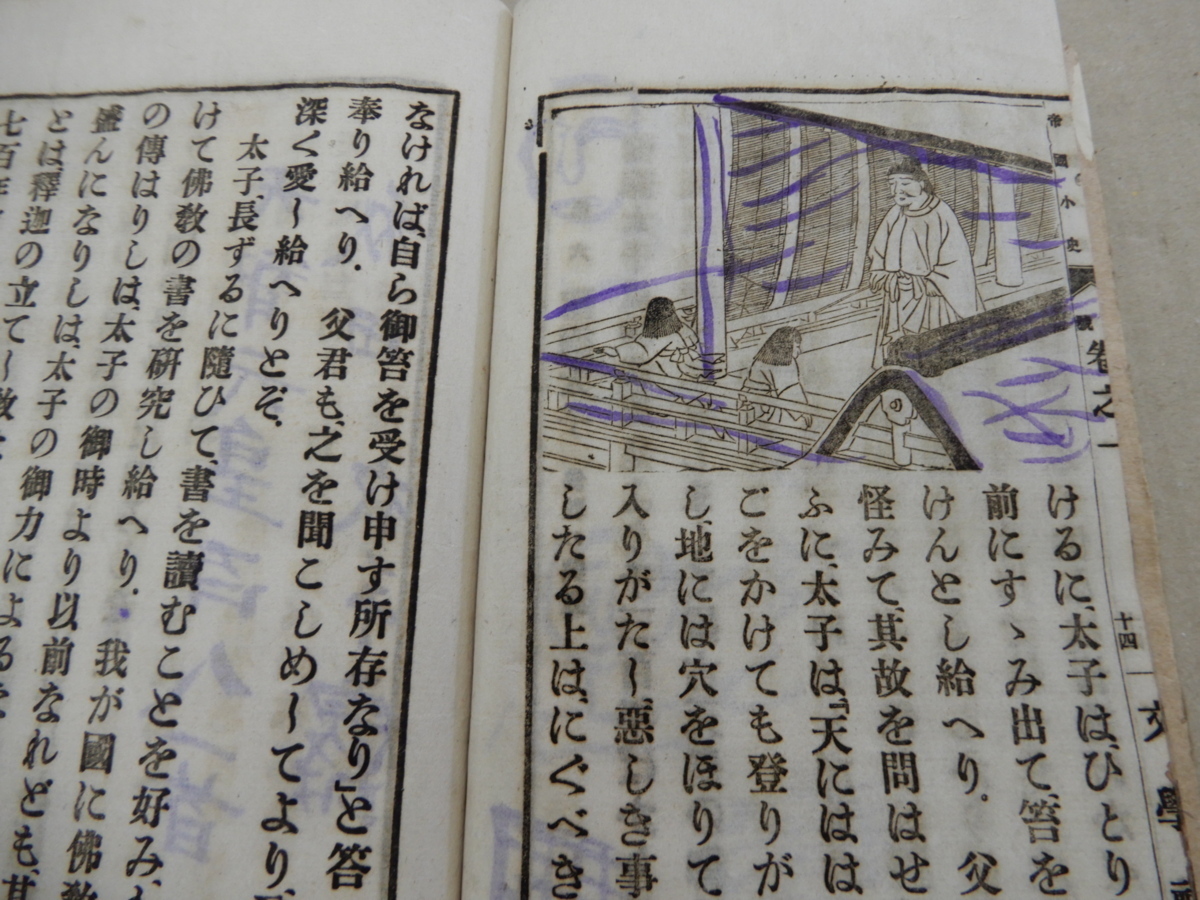 帝國小史
巻之一
十四
文學
けるに、太子は、ひとり
前にすゝみ出て、笞を
けんとし給へり。父
怪みて、其故を問はせ
ふに、太子は、「天には は
ごをかけても登りが
し、地には穴をほりて
入りがたし、惡しき事
したる上は、にぐべき
なければ、自ら御笞を受け申す所存なり」と答
奉り給へり。父君も、之を聞こしめしてより、
深く愛し給へりとぞ。
太子、長ずるに隨ひて、書を讀むことを好み、
けて佛敎の書を硏究し給へり。我が國に佛敎
の傳はりしは、太子の御時より以前なれども、其
盛んになりしは、太子の御力によるな
とは、釋迦の立てし敎
七百年